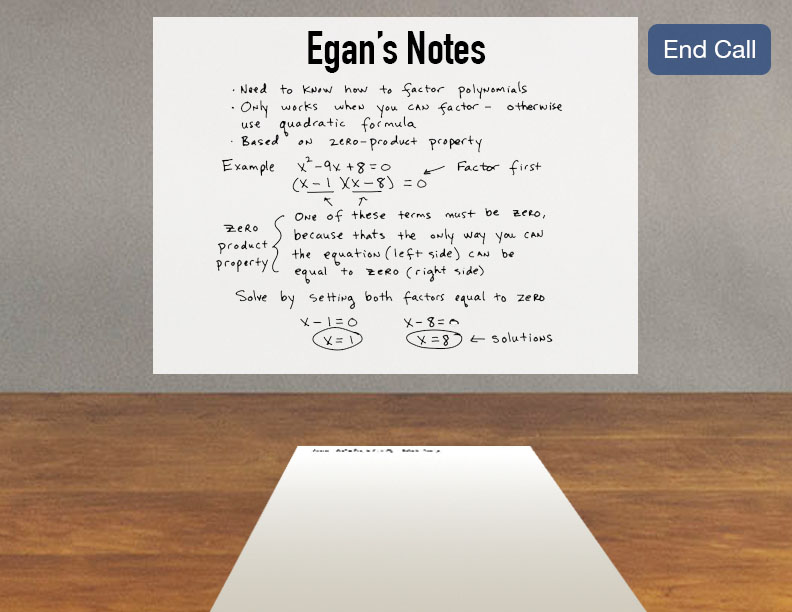 Egan's Notes
End Call
· Need to know how to factor polynomials
· Only works when you can factor – otherwise
use quadratic formula
· Based on zero-product property
Example x²-9x+8=0 ← Factor first
(x-1)(x-8) = 0
zero
product
property
One of these terms must be zero,
because thats the only way you can
the equation (left side) can be
equal to zero (right side)
Solve by setting both factors equal to zero
x-1=0 x-8=0
x=1 x=8 ← solutions